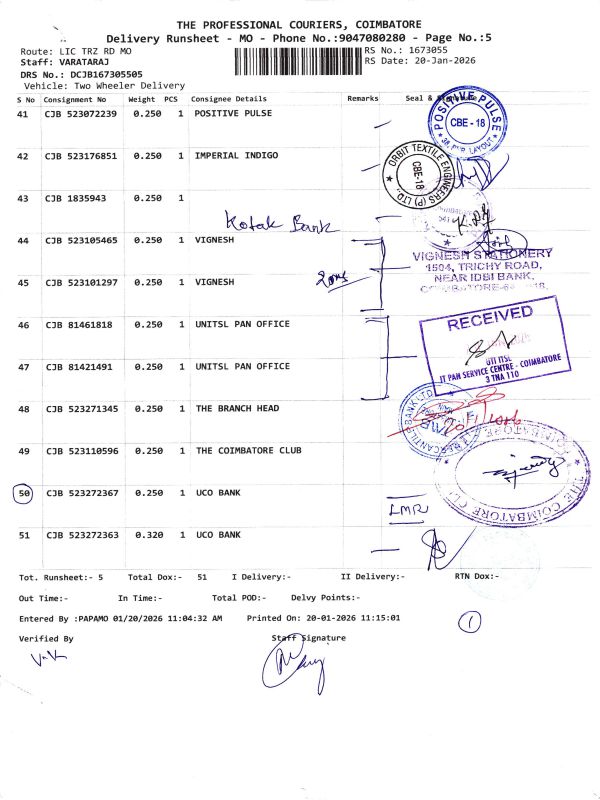 THE PROFESSIONAL COURIERS, COIMBATORE
Delivery Runsheet - MO - Phone No.:9047080280 - Page No.:5
Route: LIC TRZ RD MO
RS No.: 1673055
Staff: VARATARAJ
RS Date: 20-Jan-2026
DRS No.: DCJB167305505
Vehicle: Two Wheeler Delivery
S No Consignment No Weight PCS Consignee Details Remarks Seal &
41 CJB 523072239 0.250 1 POSITIVE PULSE
POSITIVE PULSE
CBE - 18
42 CJB 523176851 0.250 1 IMPERIAL INDIGO
ORBIT TEXTILE ENGINEERS (P) LTD.
CBE-18
43 CJB 1835943 0.250 1
Kotak Bank
44 CJB 523105465 0.250 1 VIGNESH
VIGNESH STATIONERY
1504, TRICHY ROAD,
NEAR IDBI BANK,
45 CJB 523101297 0.250 1 VIGNESH
46 CJB 81461818 0.250 1 UNITSL PAN OFFICE
RECEIVED
UTI ITSL
IT PAN SERVICE CENTRE - COIMBATORE
3 TNA 110
47 CJB 81421491 0.250 1 UNITSL PAN OFFICE
48 CJB 523271345 0.250 1 THE BRANCH HEAD
49 CJB 523110596 0.250 1 THE COIMBATORE CLUB
THE COIMBATORE CLUB
50 CJB 523272367 0.250 1 UCO BANK
LMR
51 CJB 523272363 0.320 1 UCO BANK
Tot. Runsheet:- 5 Total Dox:- 51 I Delivery:- II Delivery:- RTN Dox:-
Out Time:- In Time:- Total POD:- Delvy Points:-
Entered By :PAPAMO 01/20/2026 11:04:32 AM Printed On: 20-01-2026 11:15:01
1
Verified By Staff Signature